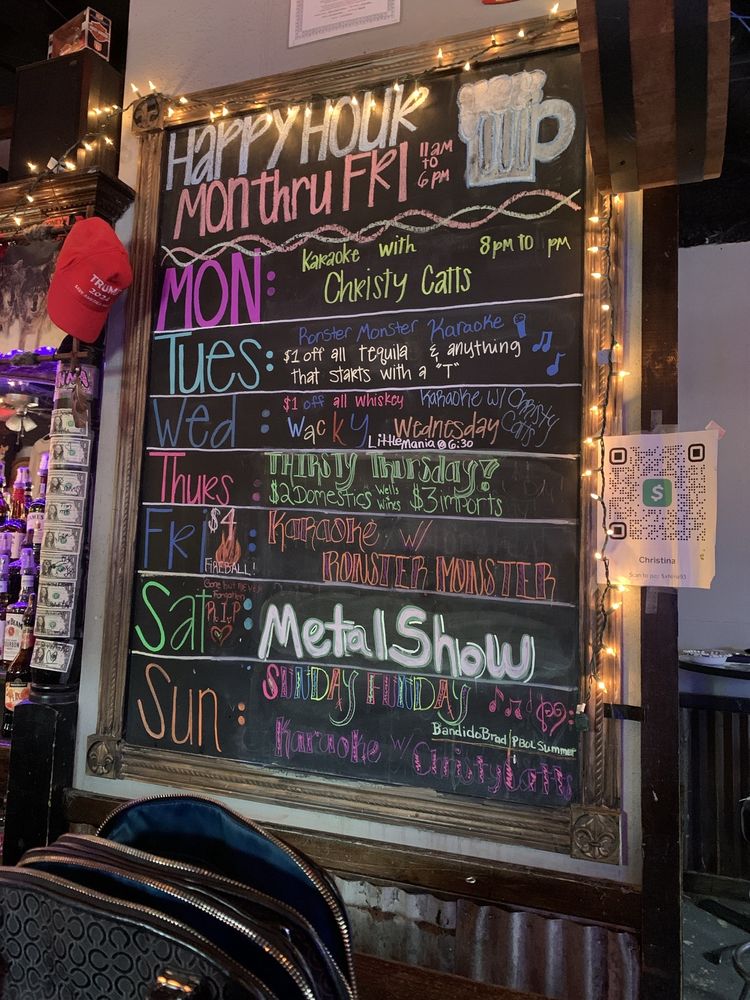 HAPPY HOUR
MON thru FRI
11am
to
6pm
MON:
Karaoke with
8pm TO pm
Christy Catts
Tues:
Ronster Monster Karaoke
$1 off all tequila & anything
that starts with a "T"
Wed:
$1 off all whiskey
Karaoke w/ Christy
Catts
Wacky Wednesday
LittleMania @ 6:30
Thurs:
Thirsty Thursday?
$2 Domestics wells
wines $3 imports
Fri:
$4
FIREBALL!
Karaoke w/
RONSTER MONSTER
Sat:
Gone but never
Forgotten
R.I.P
Metal Show
Sun:
SUNDAY FUNDAY
BandidoBrad/PBOL Summer
Karaoke w/ Christy Catts
TRUMP
2024
$
Christina